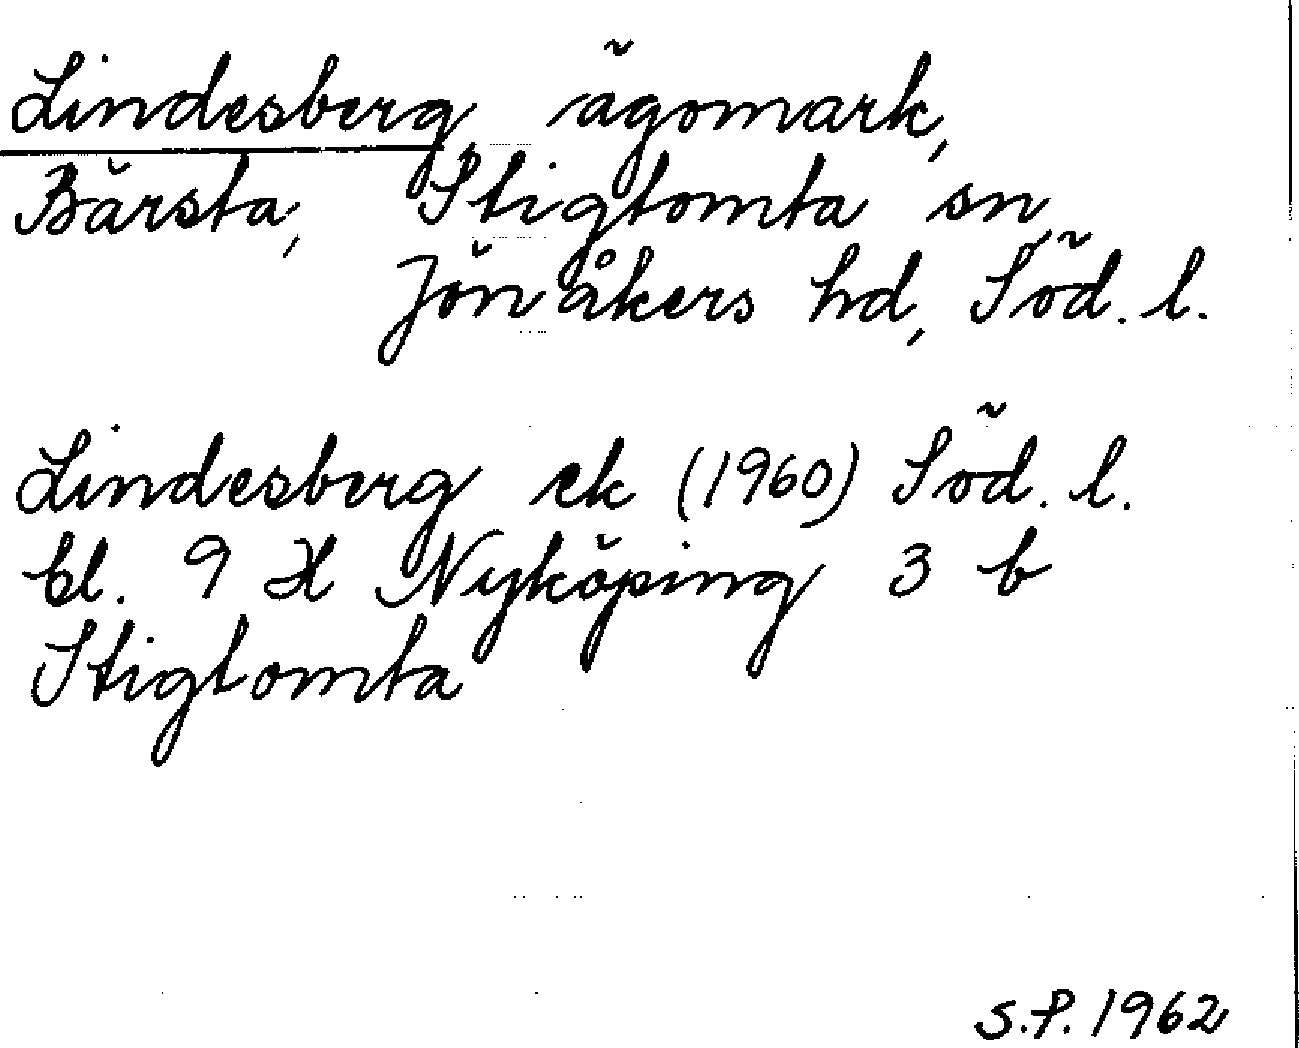 Lindesberg, ägomark,
Bärsta, Stigtomta sn,
Jönåkers hd, Söd. l.
Lindesberg ek (1960) Söd. l.
bl. 9 H Nyköping 3 b
Stigtomta
S.P. 1962